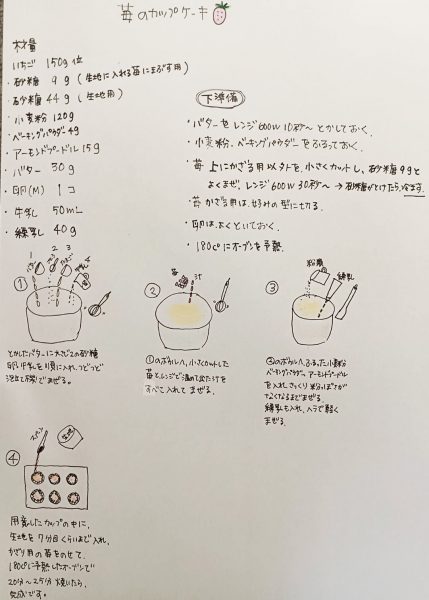 苺のカップケーキ
材量
いちご 150g 位
・砂糖 9g (生地に入れる苺にまぶす用)
・砂糖 44g (生地用)
・小麦粉 120g
・ベーキングパウダー 4g
・アーモンドプードル 15g
・バター 30g
・卵(M) 1コ
・牛乳 50mL
・練乳 40g
下準備
・バターをレンジ600W 10秒〜とかしておく。
・小麦粉、ベーキングパウダーをふるっておく。
・苺 上にかざる用以外を、小さくカットし、砂糖9gと
よくまぜ、レンジ600W 30秒〜 → 砂糖がとけたら、冷ます。
・苺 かざる用は、好みの型に切る。
・卵はよくといておく。
・180℃にオーブンを予熱。
①
1
2
3
4
とかしたバターに
砂糖
卵、牛乳を順に入れ、つどつど
泡立て器でまぜる。
②
苺
汁
①のボウルへ、小さくカットした
苺とレンジで温めて出た汁を
すべて入れてまぜる。
③
粉類
練乳
②のボウルへ、ふるった小麦粉
ベーキングパウダー、アーモンドプードル
を入れ、さっくり粉っぽさが
なくなるまでまぜる。
練乳も入れ、ヘラで軽く
まぜる。
④
スプーン
生地
用意したカップの中に、
生地を7分目くらいまで入れ、
かざり用の苺をのせて、
180℃に予熱したオーブンで
20分〜25分 焼いたら、
完成です。